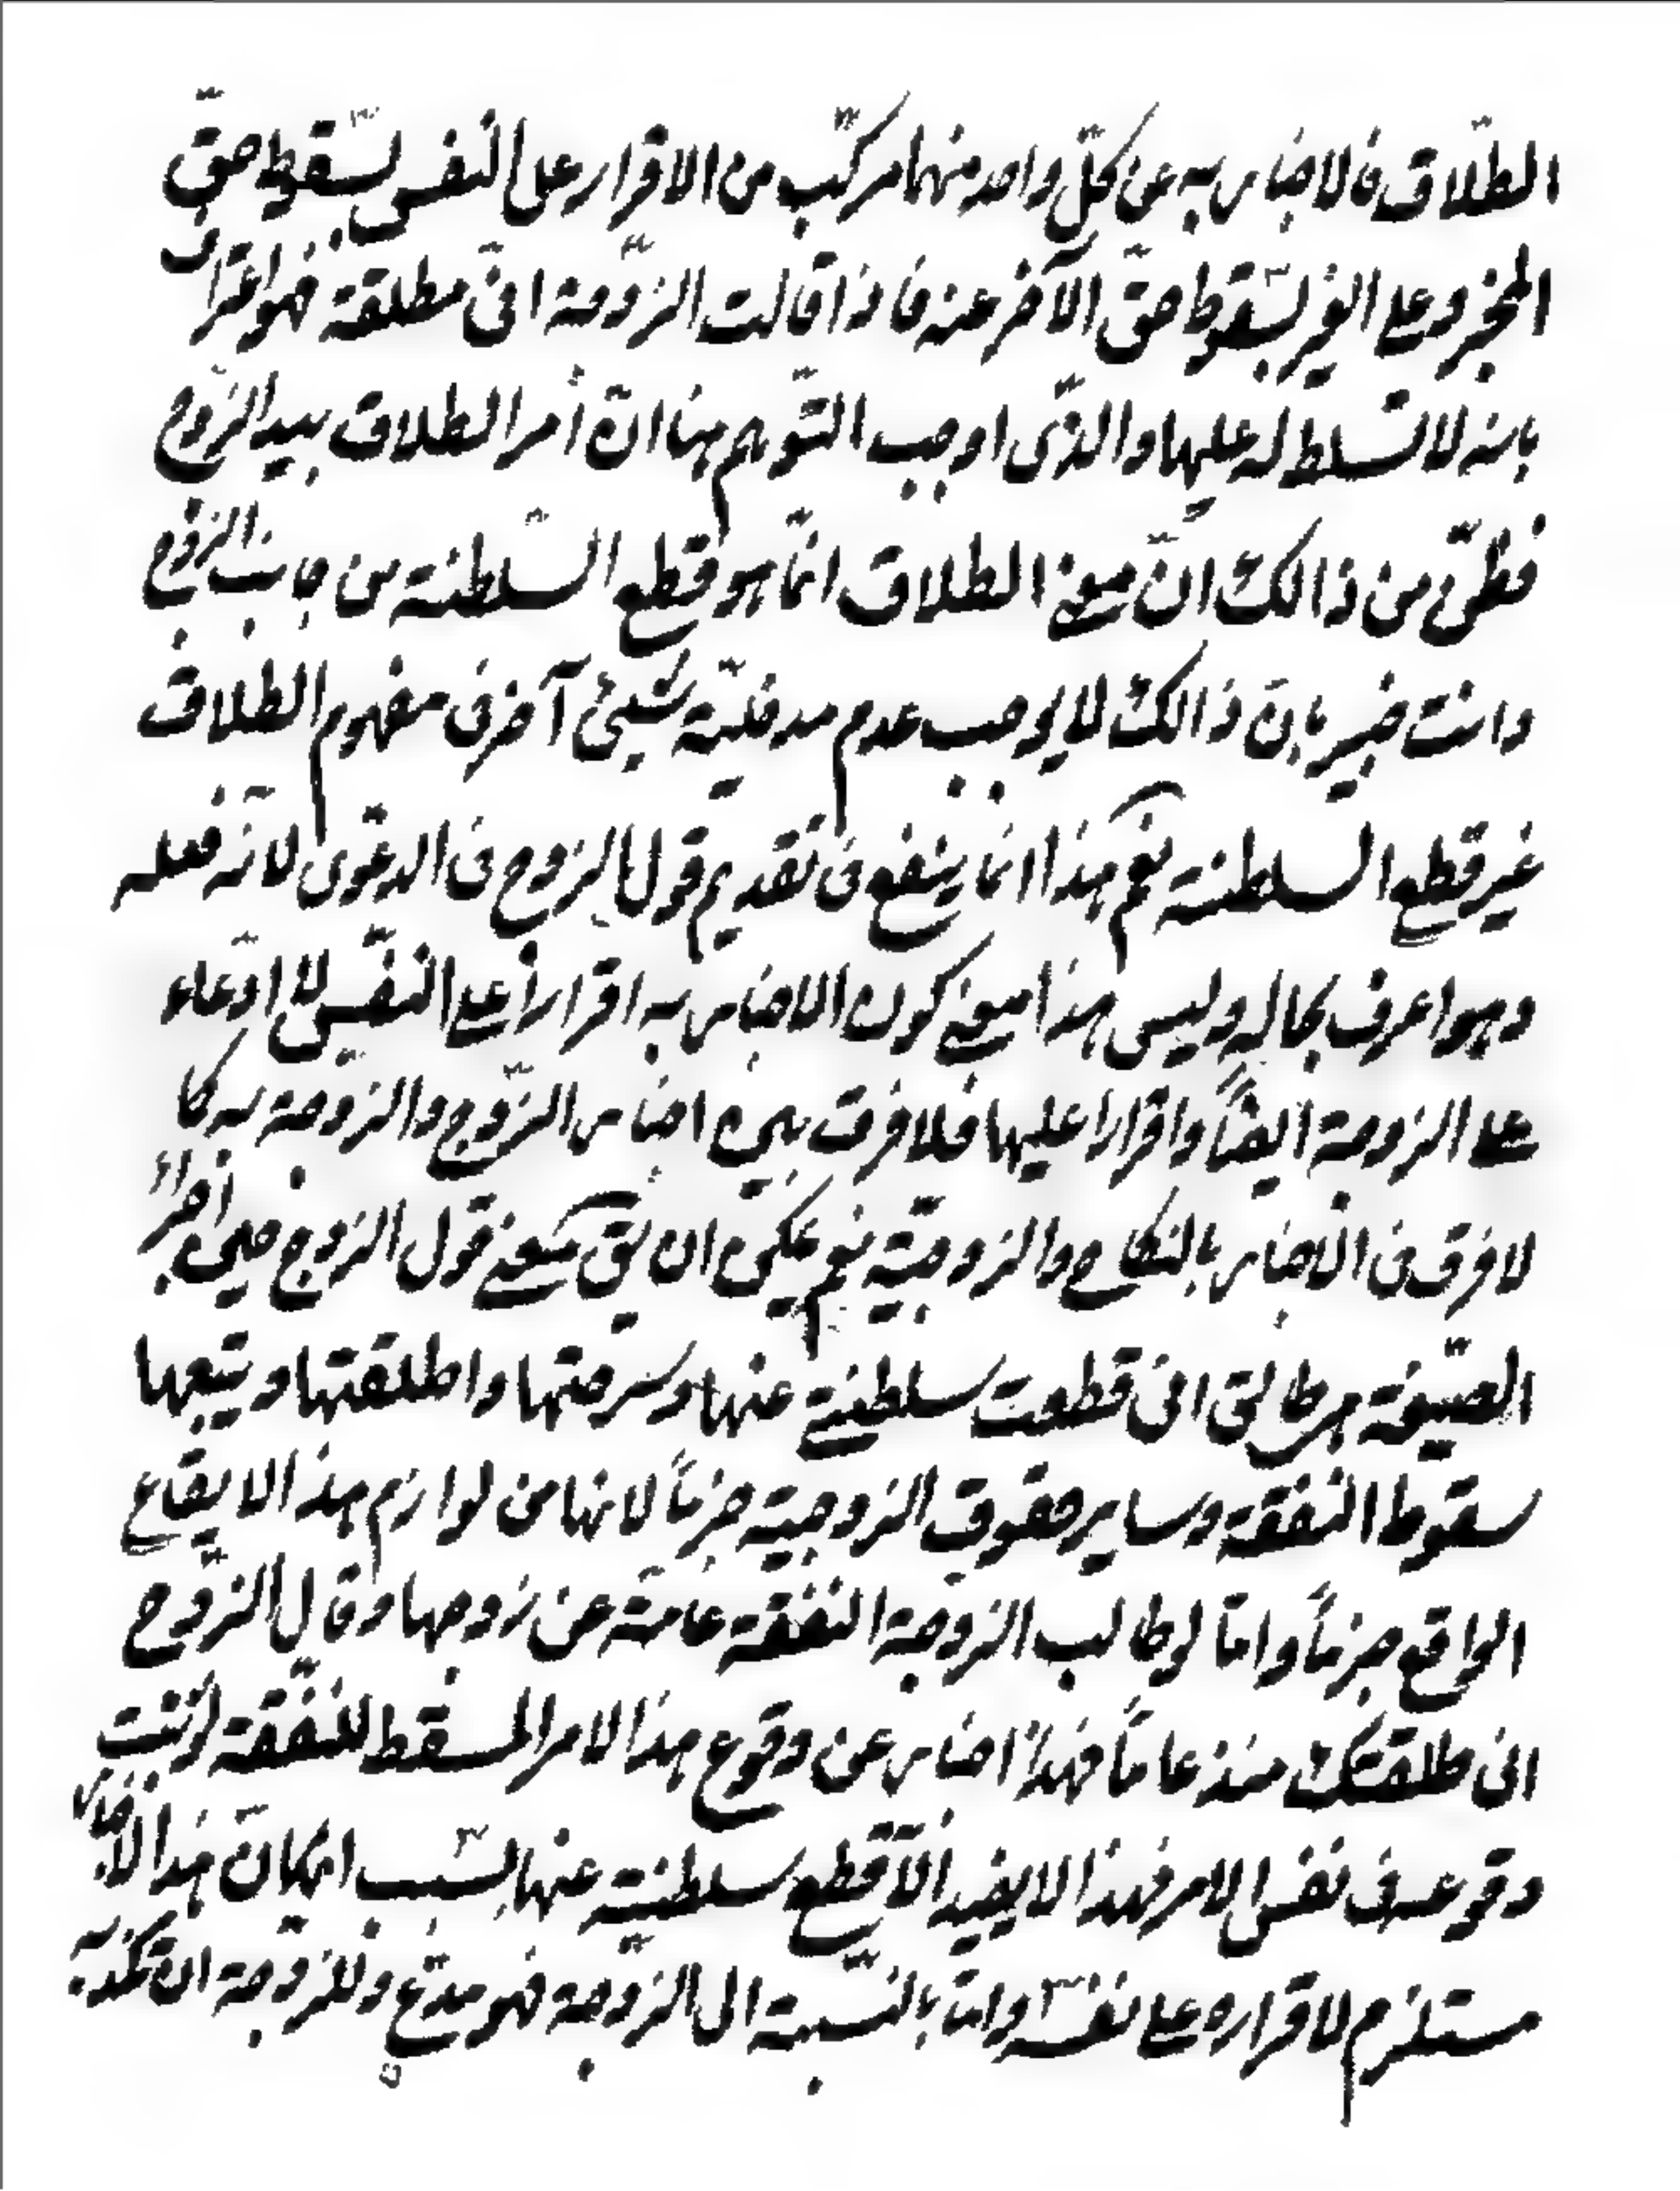 الطّلاق فالاخبار به عن كلّ واحد منهما مركّب من الاقرار على النفس بسقوط حقّ
المخبر وعلى الغير بسقوط حقّ الآخر عنه فاذا قالت الزّوجة انّى مطلقة فهو اعتراف
بانه لا تسلط له عليها والذّى اوجب التّوهم هنا انّ أمر الطلاق بيد الزّوج
فظنّ من ذالك انّ معنى الطلاق انّما هو قطع السّلطنة من جانب الزّوج
وانت خبير بانّ ذالك لا يوجب عدم مدخليّة شيئ آخر فى مفهوم الطلاق
غير قطع السلطنة نعم هذا انما ينفع فى تقديم قول الزوج فى الدعوى لانّه فعله
وهو اعرف بحاله وليس هذا معنى كون الاخبار به اقراراً على النفس لا ادّعاء
على الزوجة ايضاً واقرارا عليها فلا فرق بين اخبار الزّوج والزوجة به كما
لا فرق فى الاخبار بالنكاح والزوجيّة نعم يمكن ان يق معنى قول الزوج حين اجراء
الصّيغة هى طالق انى قطعت سلطنتى عنها وسرحتها واطلقتها ويتبعها
سقوط النفقة وساير حقوق الزوجية جزماً لانها من لوازم هذا الايقاع
الواقع جزماً وامّا لو طالب الزوجة النفقة عامة عن زوجها وقال الزّوج
انى طلقتك منذ عاماً فهذا اخبار عن وقوع هذا الامر المسقط للنفقة لو ثبت
وقوعه فى نفس الامر فهذا لا يفيد الّا قطع سلطنته عنها بسبب امكان هذا الاخبار
مستلزم لاقراره على نفسه وامّا بالنّسبة الى الزّوجة فهو مدّع وللزوجة ان تكذّبه